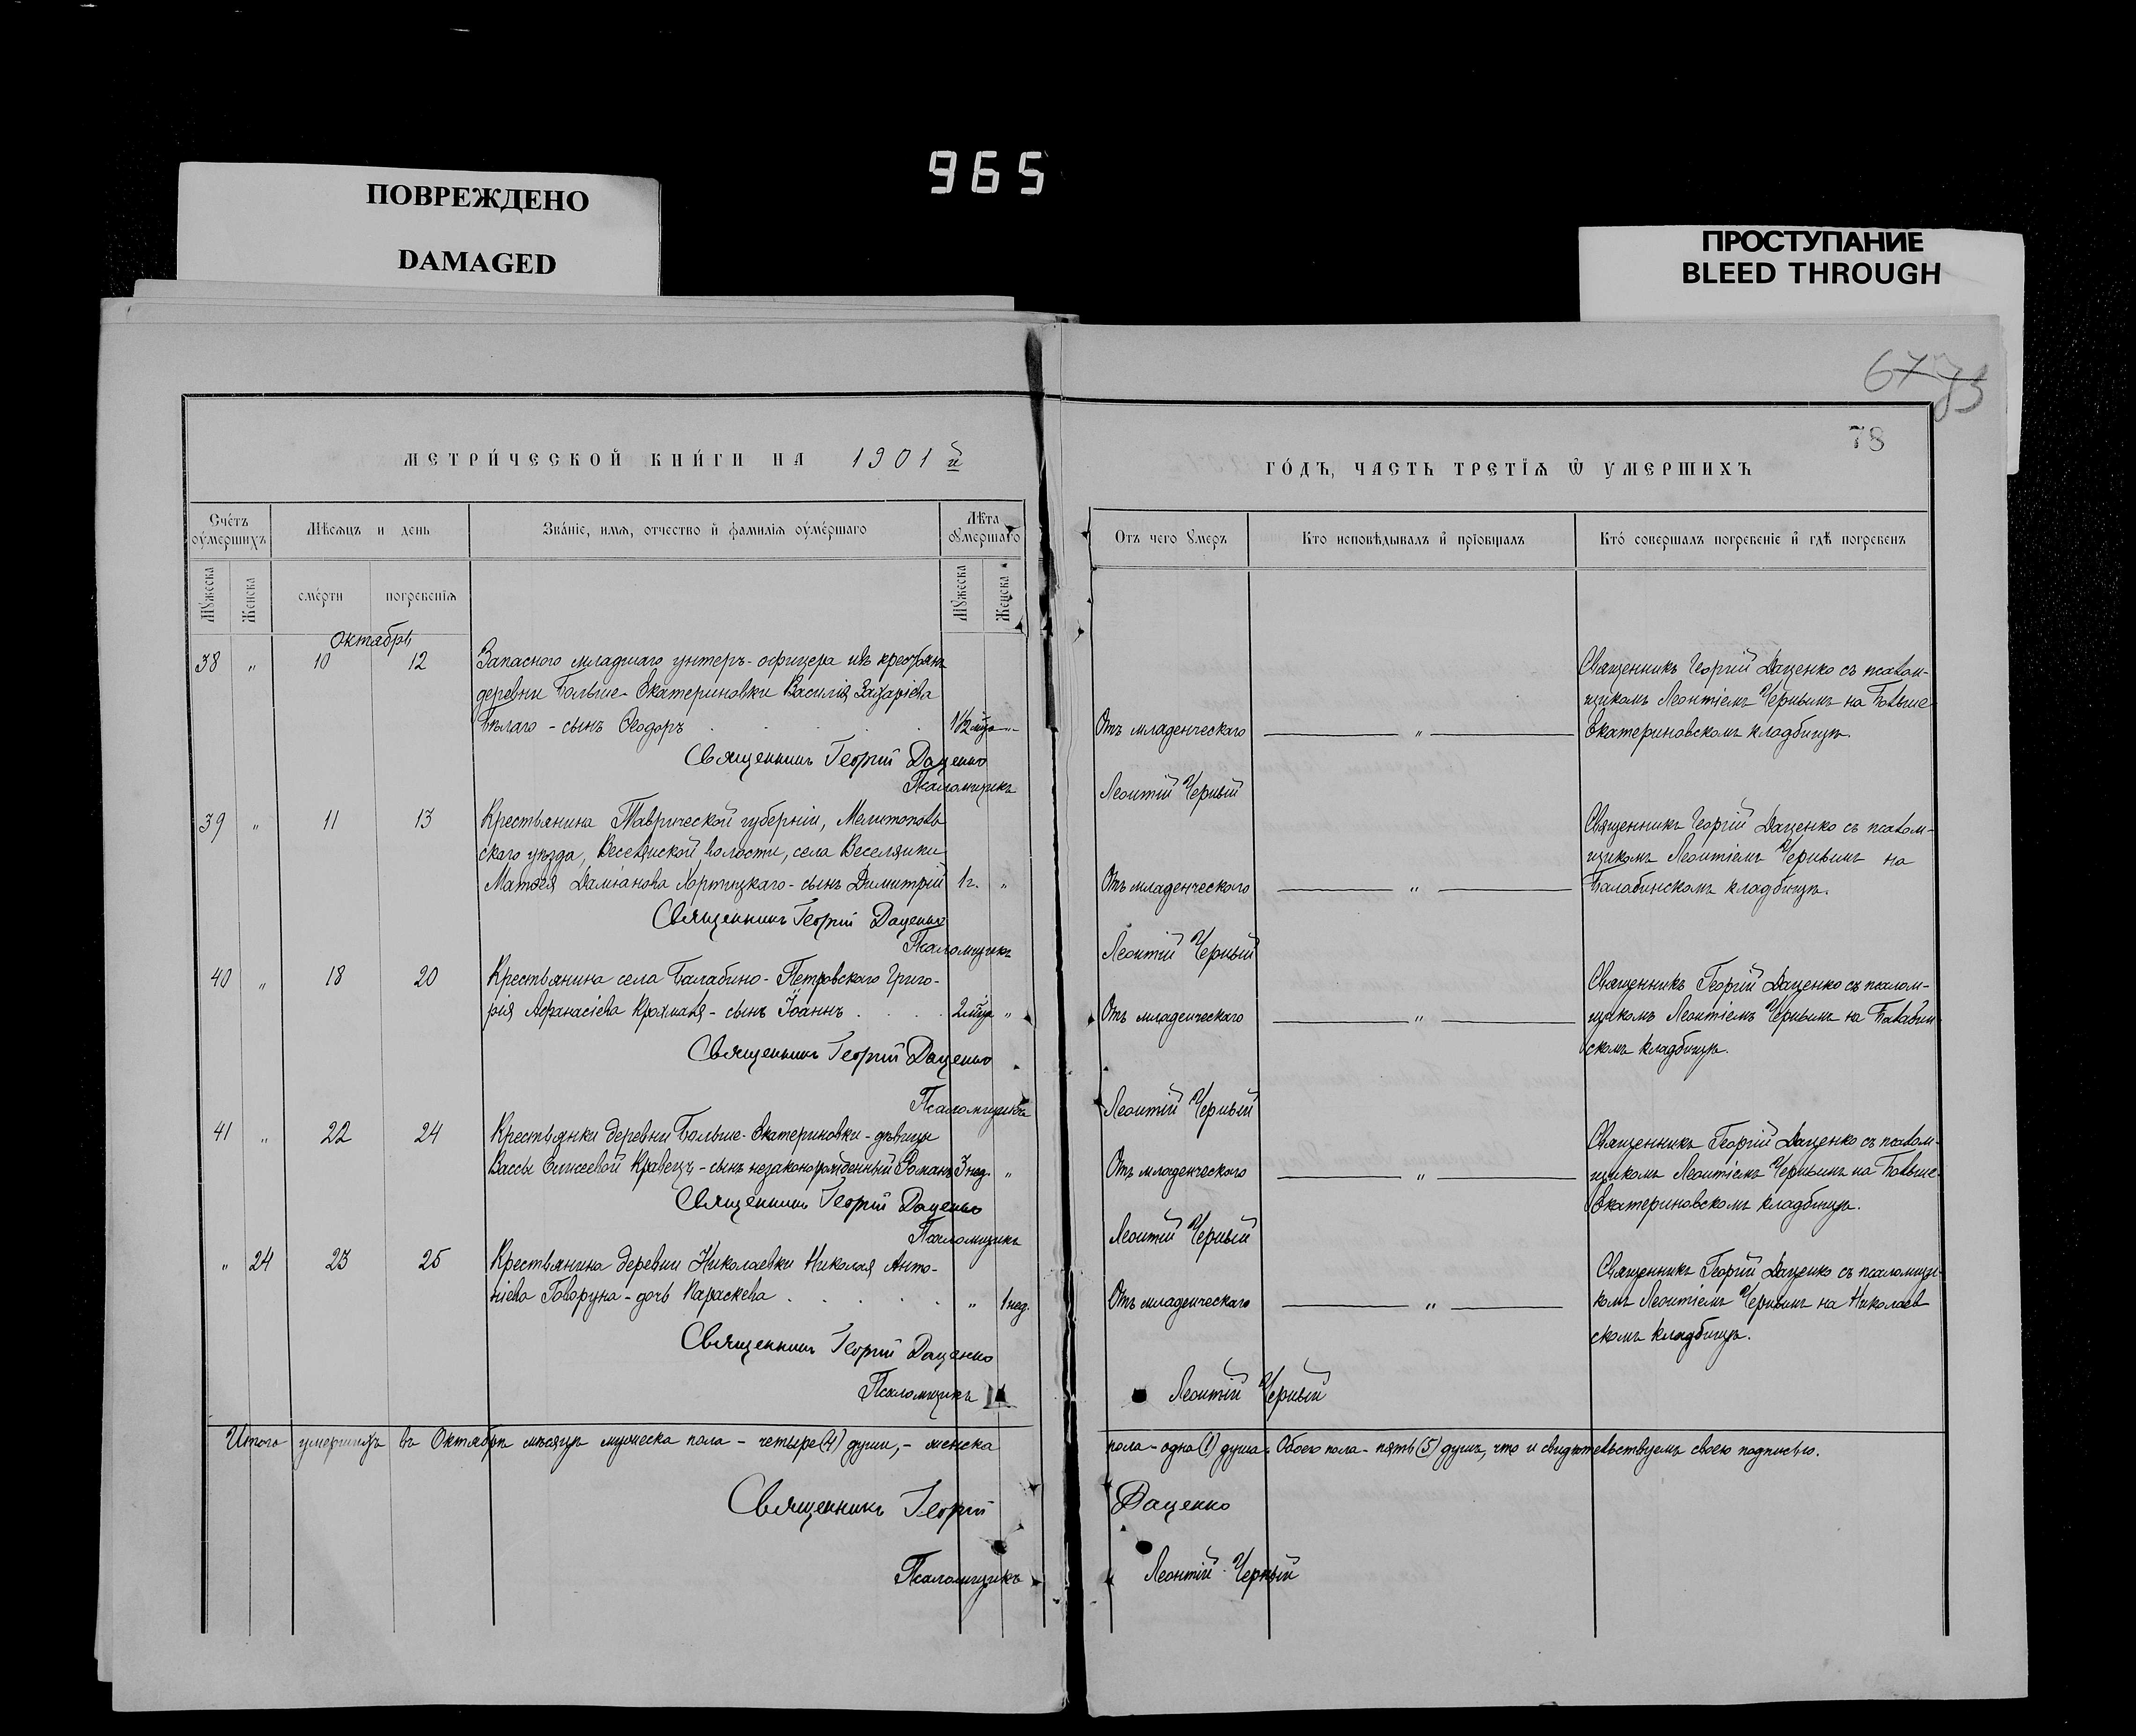 965
ПОВРЕЖДЕНО
DAMAGED
ПРОСТУПАНИЕ
BLEED THROUGH
67 73
78
МЕТРИ́ЧЕСКОЙ КНИ́ГИ НА 1901 й
ГО́ДЪ, ЧАСТЬ ТРЕТІѦ Ѿ УМЕРШИХЪ
Счетъ оумершихъ
Мѣсѧцъ и день
Зва́ніе, имѧ, отчество и фамиліѧ оуме́ршагѡ
Лѣта оумершагѡ
Отъ чего умеръ
Кто исповѣдывалъ и пріобщалъ
Кто совершалъ погребеніе и гдѣ погребенъ
Мужеска
Женска
смерти
погребеніѧ
Мужеска
Женска
Октябрь
38 " 10 12 Запасного младшаго унтеръ-офицера изъ крестьянъ
деревни Больше-Екатериновки Василія Захаріева
Бѣлаго - сынъ Ѳеодоръ . . . . 1½ мѣся "
Отъ младенческаго "
Священникъ Георгій Даценко съ псалом-
щикомъ Леонтіемъ Чернымъ на Больше
Екатериновскомъ кладбищѣ.
Священникъ Георгій Даценко
Псаломщикъ Леонтій Черный
39 " 11 13 Крестьянина Таврической губерніи, Мелитополь
скаго уѣзда, Веселянской волости, села Веселянки
Матѳея Даміанова Хортицкаго - сынъ Димитрій 1 г. "
Отъ младенческаго "
Священникъ Георгій Даценко съ псалом-
щикомъ Леонтіемъ Чернымъ на
Балабинскомъ кладбищѣ.
Священникъ Георгій Даценко
Псаломщикъ Леонтій Черный
40 " 18 20 Крестьянина села Балабино-Петровскаго Григо-
рія Аѳанасіева Крахмаля - сынъ Іоаннъ . . . . 2 мѣся "
Отъ младенческаго "
Священникъ Георгій Даценко съ псалом-
щикомъ Леонтіемъ Чернымъ на Балабин-
скомъ кладбищѣ.
Священникъ Георгій Даценко
Псаломщикъ Леонтій Черный
41 " 22 24 Крестьянки деревни Больше-Екатериновки - дѣвицы
Вассы Кравецъ - сынъ незаконорожденный Романъ 3 нед. "
Отъ младенческаго "
Священникъ Георгій Даценко съ псалом-
щикомъ Леонтіемъ Чернымъ на Больше-
Екатериновскомъ кладбищѣ.
Священникъ Георгій Даценко
Псаломщикъ Леонтій Черный
" 24 23 25 Крестьянина деревни Николаевки Николая Анто-
ніева Говоруна - дочь Параскева . . . . . " 1 нед.
Отъ младенческаго "
Священникъ Георгій Даценко съ псаломщи-
комъ Леонтіемъ Чернымъ на Николаев
скомъ кладбищѣ.
Священникъ Георгій Даценко
Псаломщикъ Леонтій Черный
Итого умершихъ въ Октябрѣ мѣсяцѣ мужеска пола - четыре (4) души, - женска пола - одна (1) душа. Обоего пола - пять (5) душъ, что и свидѣтельствуемъ своею подписью.
Священникъ Георгій Даценко
Псаломщикъ Леонтій Черный